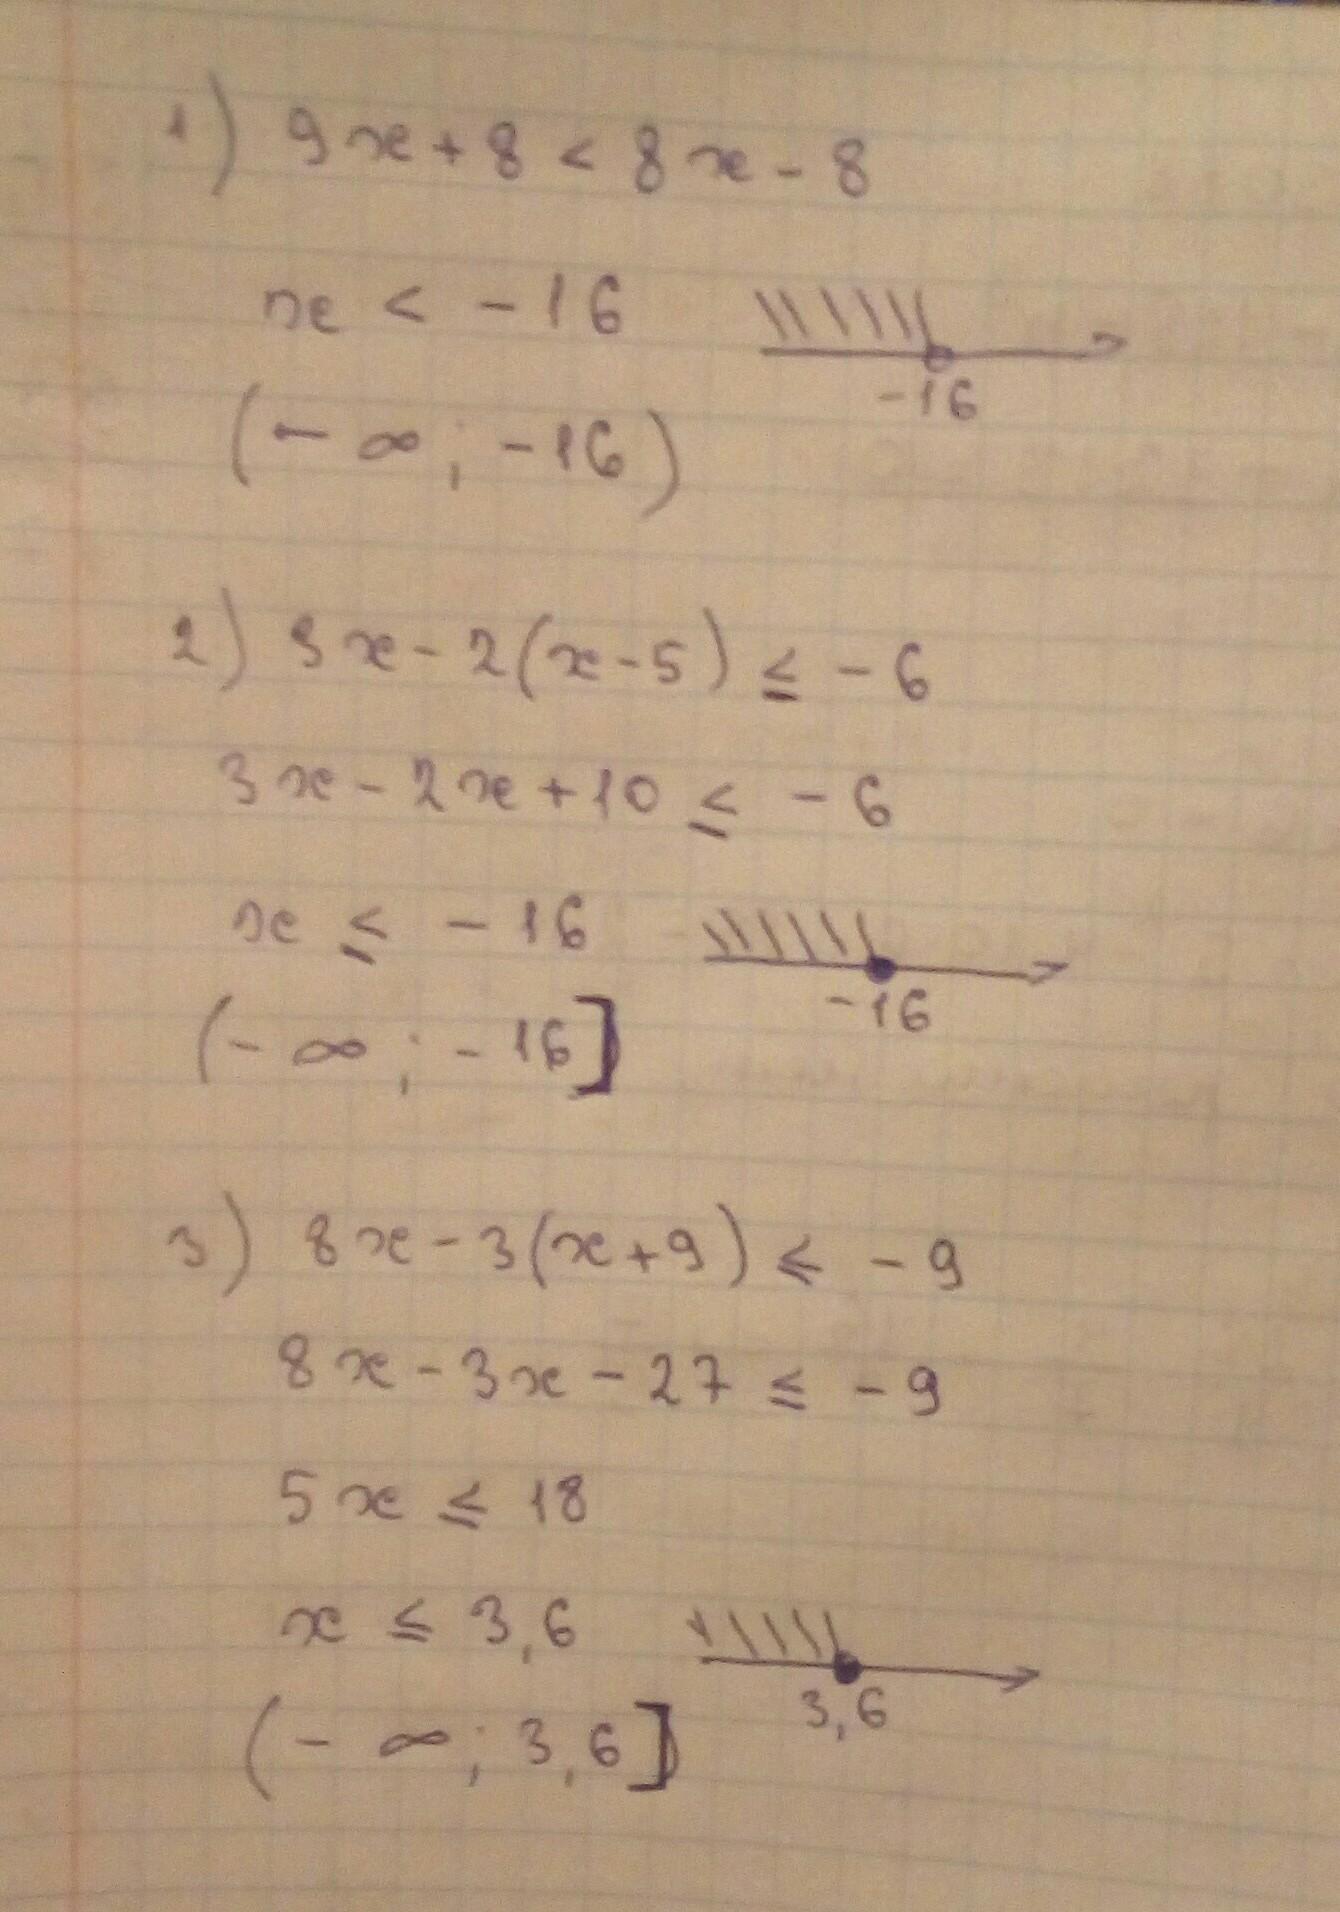 1) 9x + 8 < 8x - 8
x < - 16
-16
(- ∞ ; -16)
2) 3x - 2(x - 5) ≤ - 6
3x - 2x + 10 ≤ - 6
x ≤ - 16
-16
(- ∞ ; - 16]
3) 8x - 3(x + 9) ≤ - 9
8x - 3x - 27 ≤ - 9
5x ≤ 18
x ≤ 3,6
3,6
(- ∞ ; 3,6]